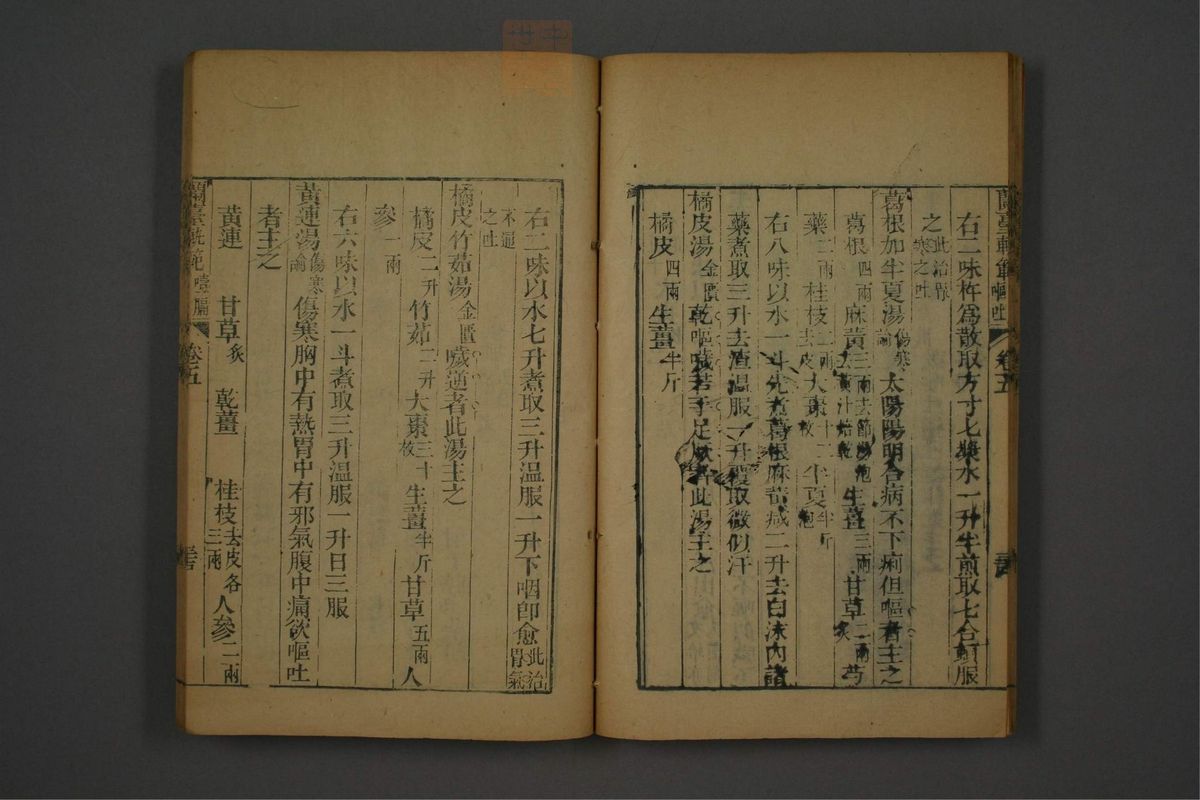 蘭臺軌範 嘔吐 卷五
右二味杵為散取方寸匕漿水一升半煎取七合頓服
之此治胃
寒之吐
葛根加半夏湯傷寒論 太陽陽明合病不下痢但嘔者主之
葛根四兩 麻黃三兩去節湯泡去黃汁焙乾 生薑三兩 甘草二兩炙 芍
藥二兩 桂枝二兩去皮 大棗十二枚 半夏半斤泡
右八味以水一斗先煮葛根麻黃減二升去白沫內諸
藥煮取三升去渣溫服一升覆取微似汗
橘皮湯金匱 乾嘔噦若手足厥者此湯主之
橘皮四兩 生薑半斤
右二味以水七升煮取三升溫服一升下咽卽愈此治胃氣
不通
之吐
橘皮竹茹湯金匱 噦逆者此湯主之
橘皮二升 竹茹二升 大棗三十枚 生薑半斤 甘草五兩 人
參一兩
右六味以水一斗煮取三升溫服一升日三服
黃連湯傷寒論 傷寒胸中有熱胃中有邪氣腹中痛欲嘔吐
者主之
黃連 甘草炙 乾薑 桂枝去皮各三兩 人參二兩
蘭臺軌範 噎膈 卷五